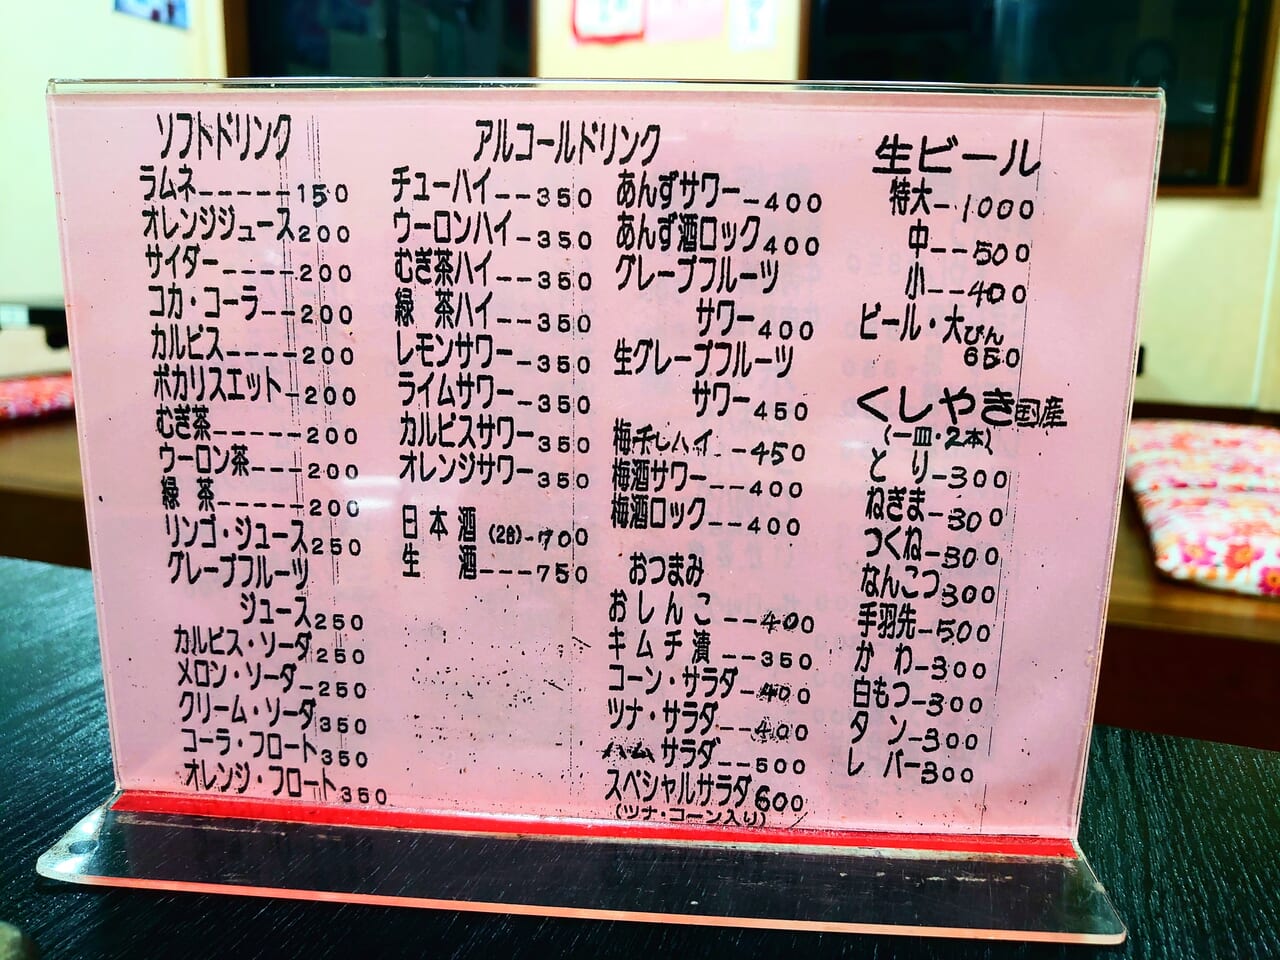 ソフトドリンク
ラムネ-----150
オレンジジュース200
サイダー----200
コカ・コーラ--200
カルピス----200
ポカリスエット-200
むぎ茶-----200
ウーロン茶---200
緑茶-----200
リンゴ・ジュース250
グレープフルーツ
ジュース250
カルピス・ソーダ250
メロン・ソーダ-250
クリーム・ソーダ350
コーラ・フロート350
オレンジ・フロート350
アルコールドリンク
チューハイ--350
ウーロンハイ-350
むぎ茶ハイ--350
緑茶ハイ--350
レモンサワー-350
ライムサワー-350
カルピスサワー350
オレンジサワー350
日本酒(2合)-700
生酒---750
あんずサワー-400
あんず酒ロック400
グレープフルーツ
サワー400
生グレープフルーツ
サワー450
梅干しハイ--450
梅酒サワー--400
梅酒ロック--400
おつまみ
おしんこ--400
キムチ漬--350
コーン・サラダ-400
ツナ・サラダ--400
ハムサラダ--500
スペシャルサラダ600
(ツナ・コーン入り)
生ビール
特大-1000
中--500
小--400
ビール・大びん
650
くしやき国産
(一皿・2本)
とり-300
ねぎま-300
つくね-300
なんこつ300
手羽先-500
かわ-300
白もつ-300
タン-300
レバー300